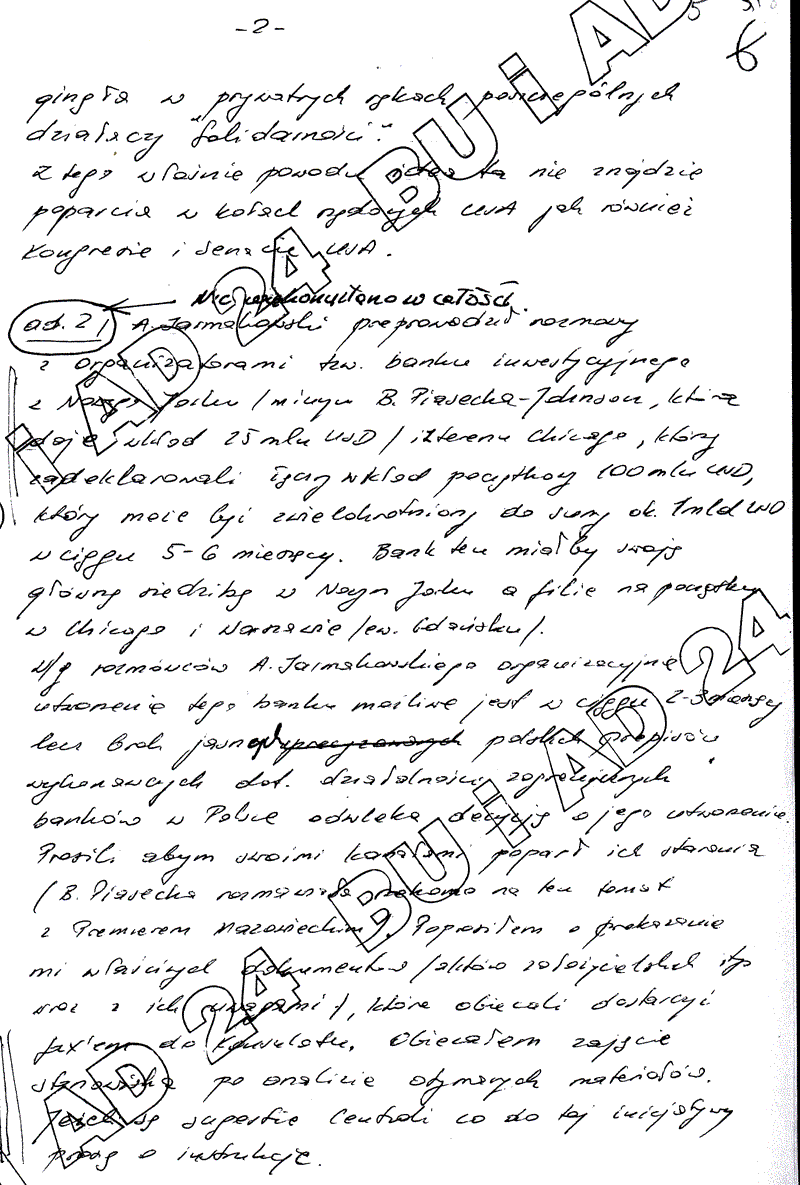 -2-
6
ginęła w prywatnych rękach poszczególnych
działaczy "Solidarności".
Z tego właśnie powodu idea ta nie znajdzie
poparcia w kołach rządowych USA jak również
Kongresie i Senacie USA.
w całości.
ad. 2/ A. Jarmakowski przeprowadził rozmowy
z organizatorami tzw. banku inwestycyjnego
z Nowego Jorku /m.inn B. Piasecka-Johnson, która
daje wkład 25 mln USD/ i z terenu Chicago, którzy
zadeklarowali łączny wkład początkowy 100 mln USD,
który może być zwielokrotniony do sumy ok. 1 mld USD
w ciągu 5-6 miesięcy. Bank ten miałby swoją
główną siedzibę w Nowym Jorku a filie na początku
w Chicago i Warszawie /ew. Gdańsku/.
W/g rozmówców A. Jarmakowskiego organizacyjnie
utworzenie tego banku możliwe jest w ciągu 2-3 miesięcy
lecz brak jasnych polskich przepisów
wykonawczych dot. działalności zagranicznych
banków w Polsce odwleka decyzję o jego utworzeniu.
Prosili abym swoimi kanałami poparł ich starania
/B. Piasecka rozmawiała rzekomo na ten temat
z Premierem Mazowieckim/. Poprosiłem o przekazanie
mi właściwych dokumentów /aktów założycielskich itp
wraz z ich uwagami/, które obiecali dostarczyć
fax'em do Konsulatu. Obiecałem zajęcie
stanowiska po analizie otrzymanych materiałów.
Jeżeli są sugestie Centrali co do tej inicjatywy
proszę o instrukcje.
BU i AD 24
BU i AD 24
BU i AD 24